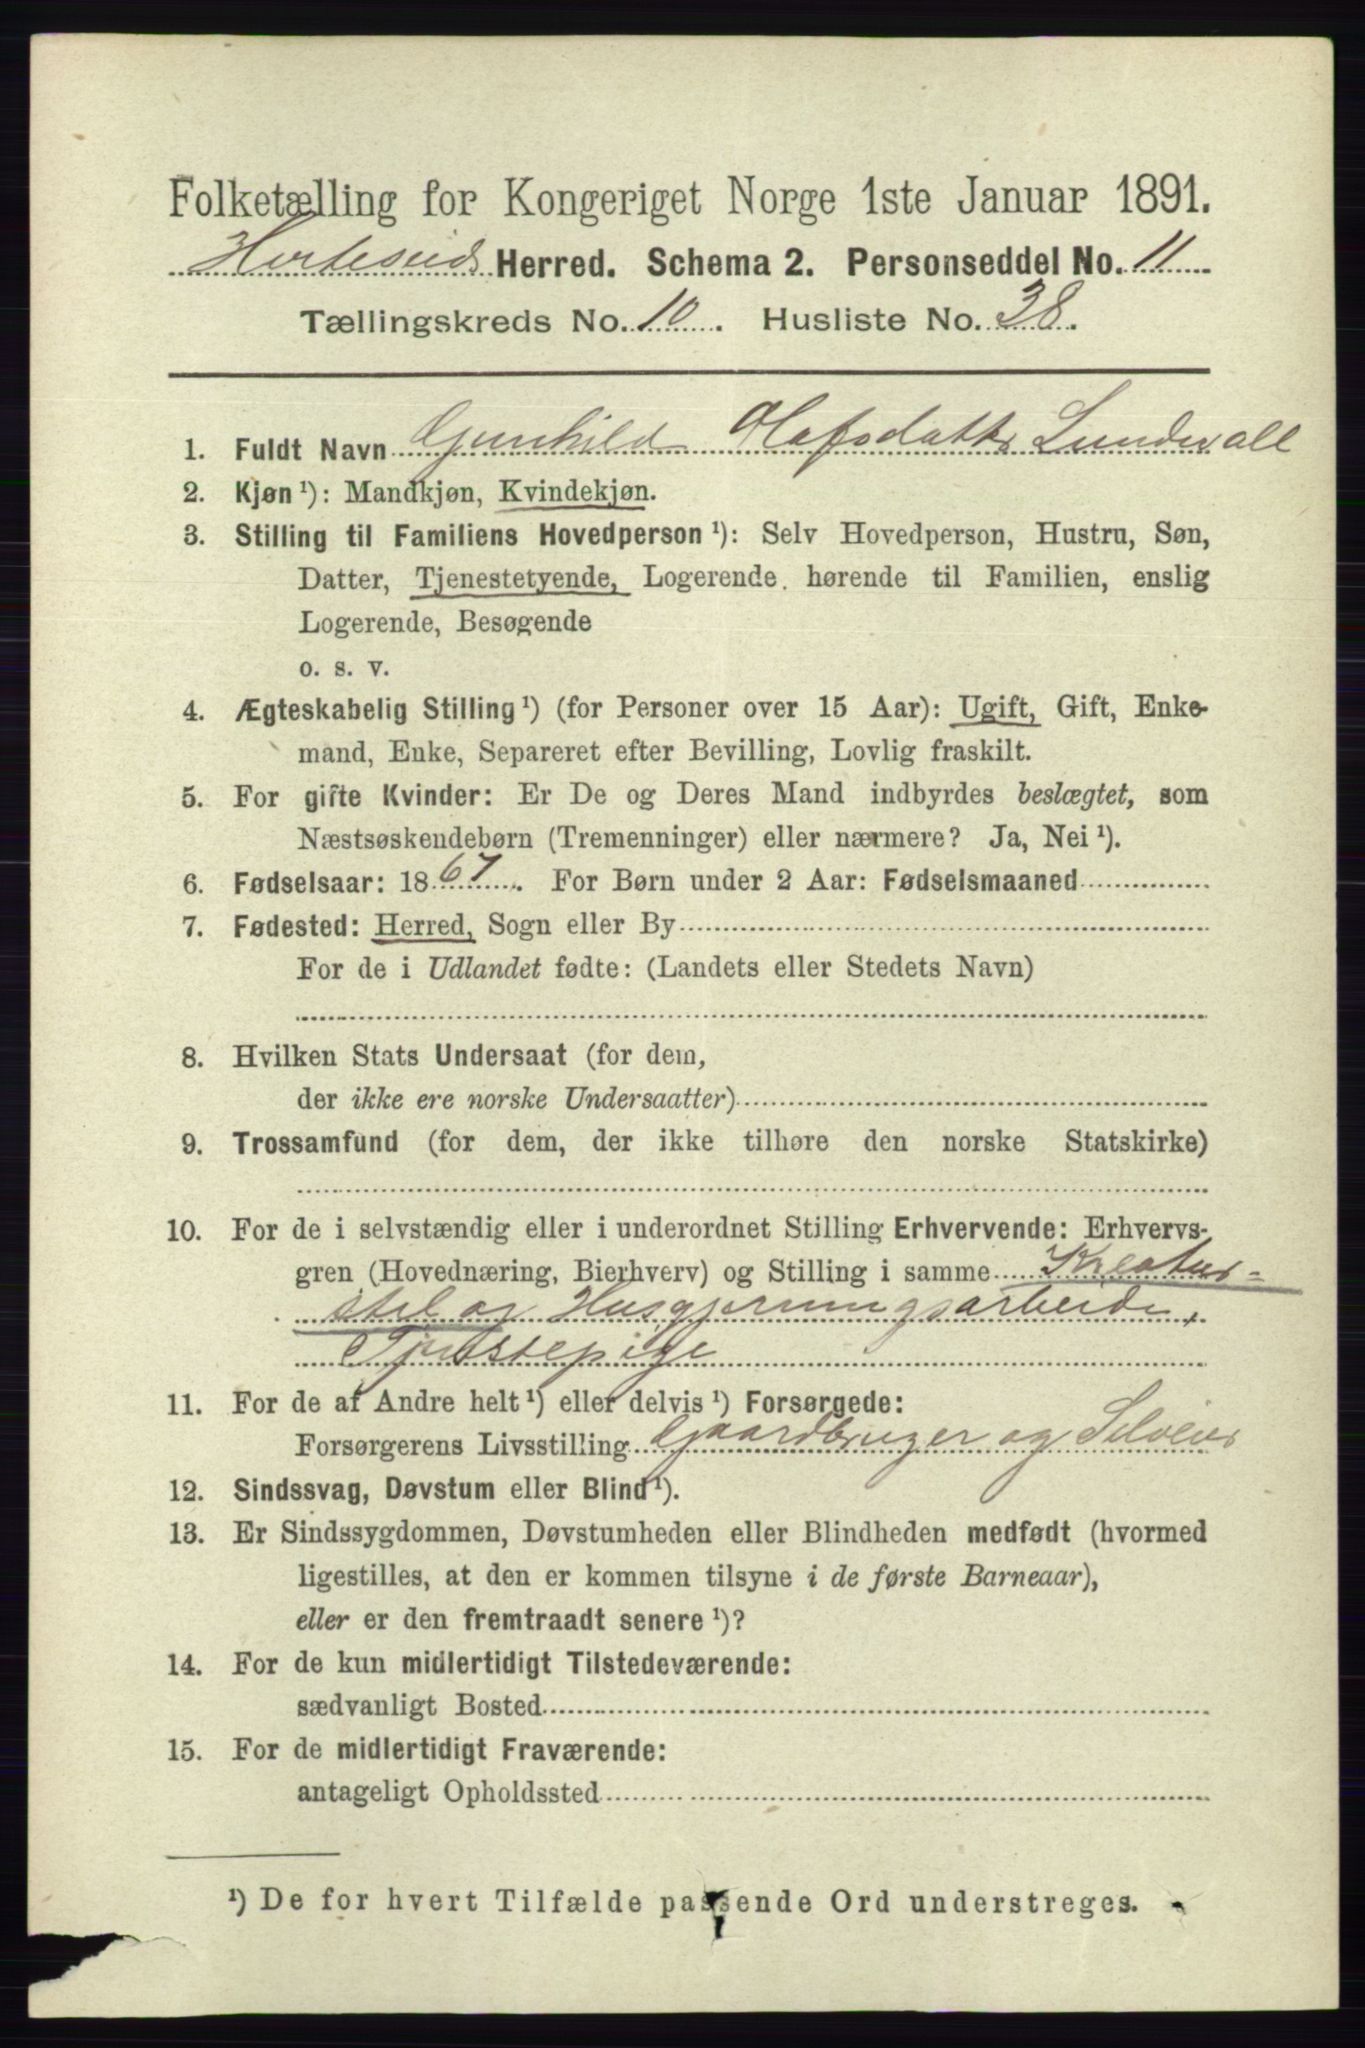 Folketælling for Kongeriget Norge 1ste Januar 1891.
Hviteseids Herred. Schema 2. Personseddel No. 11
Tællingskreds No. 10. Husliste No. 38.
1. Fuldt Navn Gunhild Olafsdatter Lundevall
2. Kjøn ¹): Mandkjøn, Kvindekjøn.
3. Stilling til Familiens Hovedperson ¹): Selv Hovedperson, Hustru, Søn,
Datter, Tjenestetyende, Logerende hørende til Familien, enslig
Logerende, Besøgende
o. s. v.
4. Ægteskabelig Stilling ¹) (for Personer over 15 Aar): Ugift, Gift, Enke-
mand, Enke, Separeret efter Bevilling, Lovlig fraskilt.
5. For gifte Kvinder: Er De og Deres Mand indbyrdes beslægtet, som
Næstsøskendebørn (Tremenninger) eller nærmere? Ja, Nei ¹).
6. Fødselsaar: 1867. For Børn under 2 Aar: Fødselsmaaned
7. Fødested: Herred, Sogn eller By
For de i Udlandet fødte: (Landets eller Stedets Navn)
8. Hvilken Stats Undersaat (for dem,
der ikke ere norske Undersaatter)
9. Trossamfund (for dem, der ikke tilhøre den norske Statskirke)
10. For de i selvstændig eller i underordnet Stilling Erhvervende: Erhvervs-
gren (Hovednæring, Bierhverv) og Stilling i samme Kreatur-
stel og Husgjerningsarbeide,
Tjenstepige
11. For de af Andre helt ¹) eller delvis ¹) Forsørgede:
Forsørgerens Livsstilling Gaardbruger og Selveier
12. Sindssvag, Døvstum eller Blind ¹).
13. Er Sindssygdommen, Døvstumheden eller Blindheden medfødt (hvormed
ligestilles, at den er kommen tilsyne i de første Barneaar),
eller er den fremtraadt senere ¹)?
14. For de kun midlertidigt Tilstedeværende:
sædvanligt Bosted
15. For de midlertidigt Fraværende:
antageligt Opholdssted
¹) De for hvert Tilfælde passende Ord understreges.